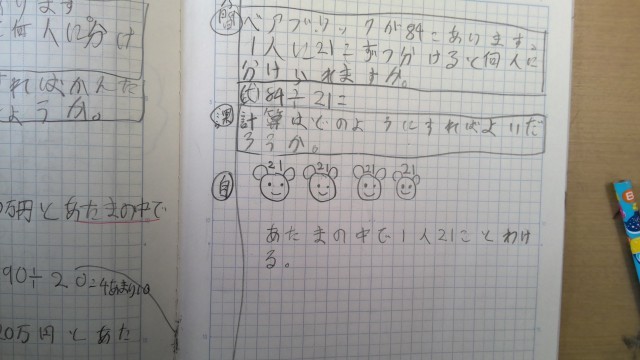 りま す
と 何 人 に 分 け
すれ ば か ん た
よ う か 。
0万円 と あ た ま の 中 で
90÷20=4あまり10
20万 円 と あ た
問 ベ ア ブ ロ ッ ク が 84 こ あ り ま す 。
1 人 に 21 こ ず つ 分 け る と 何 人 に
分 け ら れ ま す か 。
式 84÷21=
課 計 算 は ど の よ う に す れ ば よ い だ
ろ う か 。
自 21 21 21 21
あ た ま の 中 で 1 人 21 こ と わ け
る 。
B